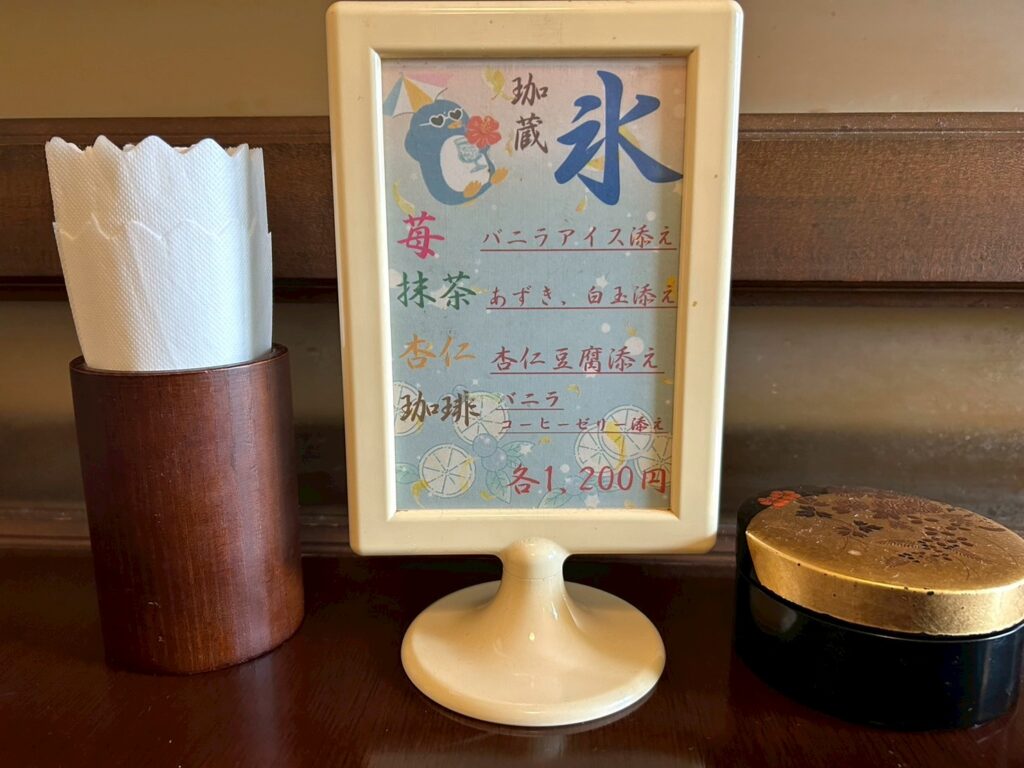 珈蔵
氷
苺 バニラアイス添え
抹茶 あずき、白玉添え
杏仁 杏仁豆腐添え
珈琲 バニラ
コーヒーゼリー添え
各1,200円